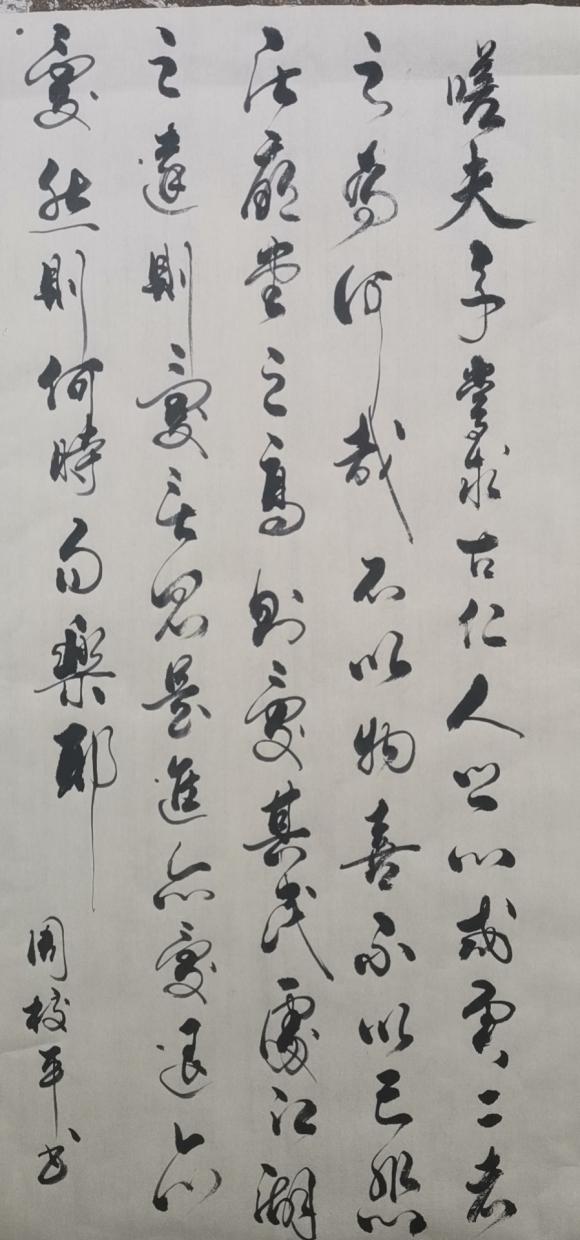 嗟夫予嘗求古仁人之心或異二者
之為何哉不以物喜不以己悲
居廟堂之高則憂其民處江湖
之遠則憂其君是進亦憂退亦
憂然則何時而樂耶
周校平书